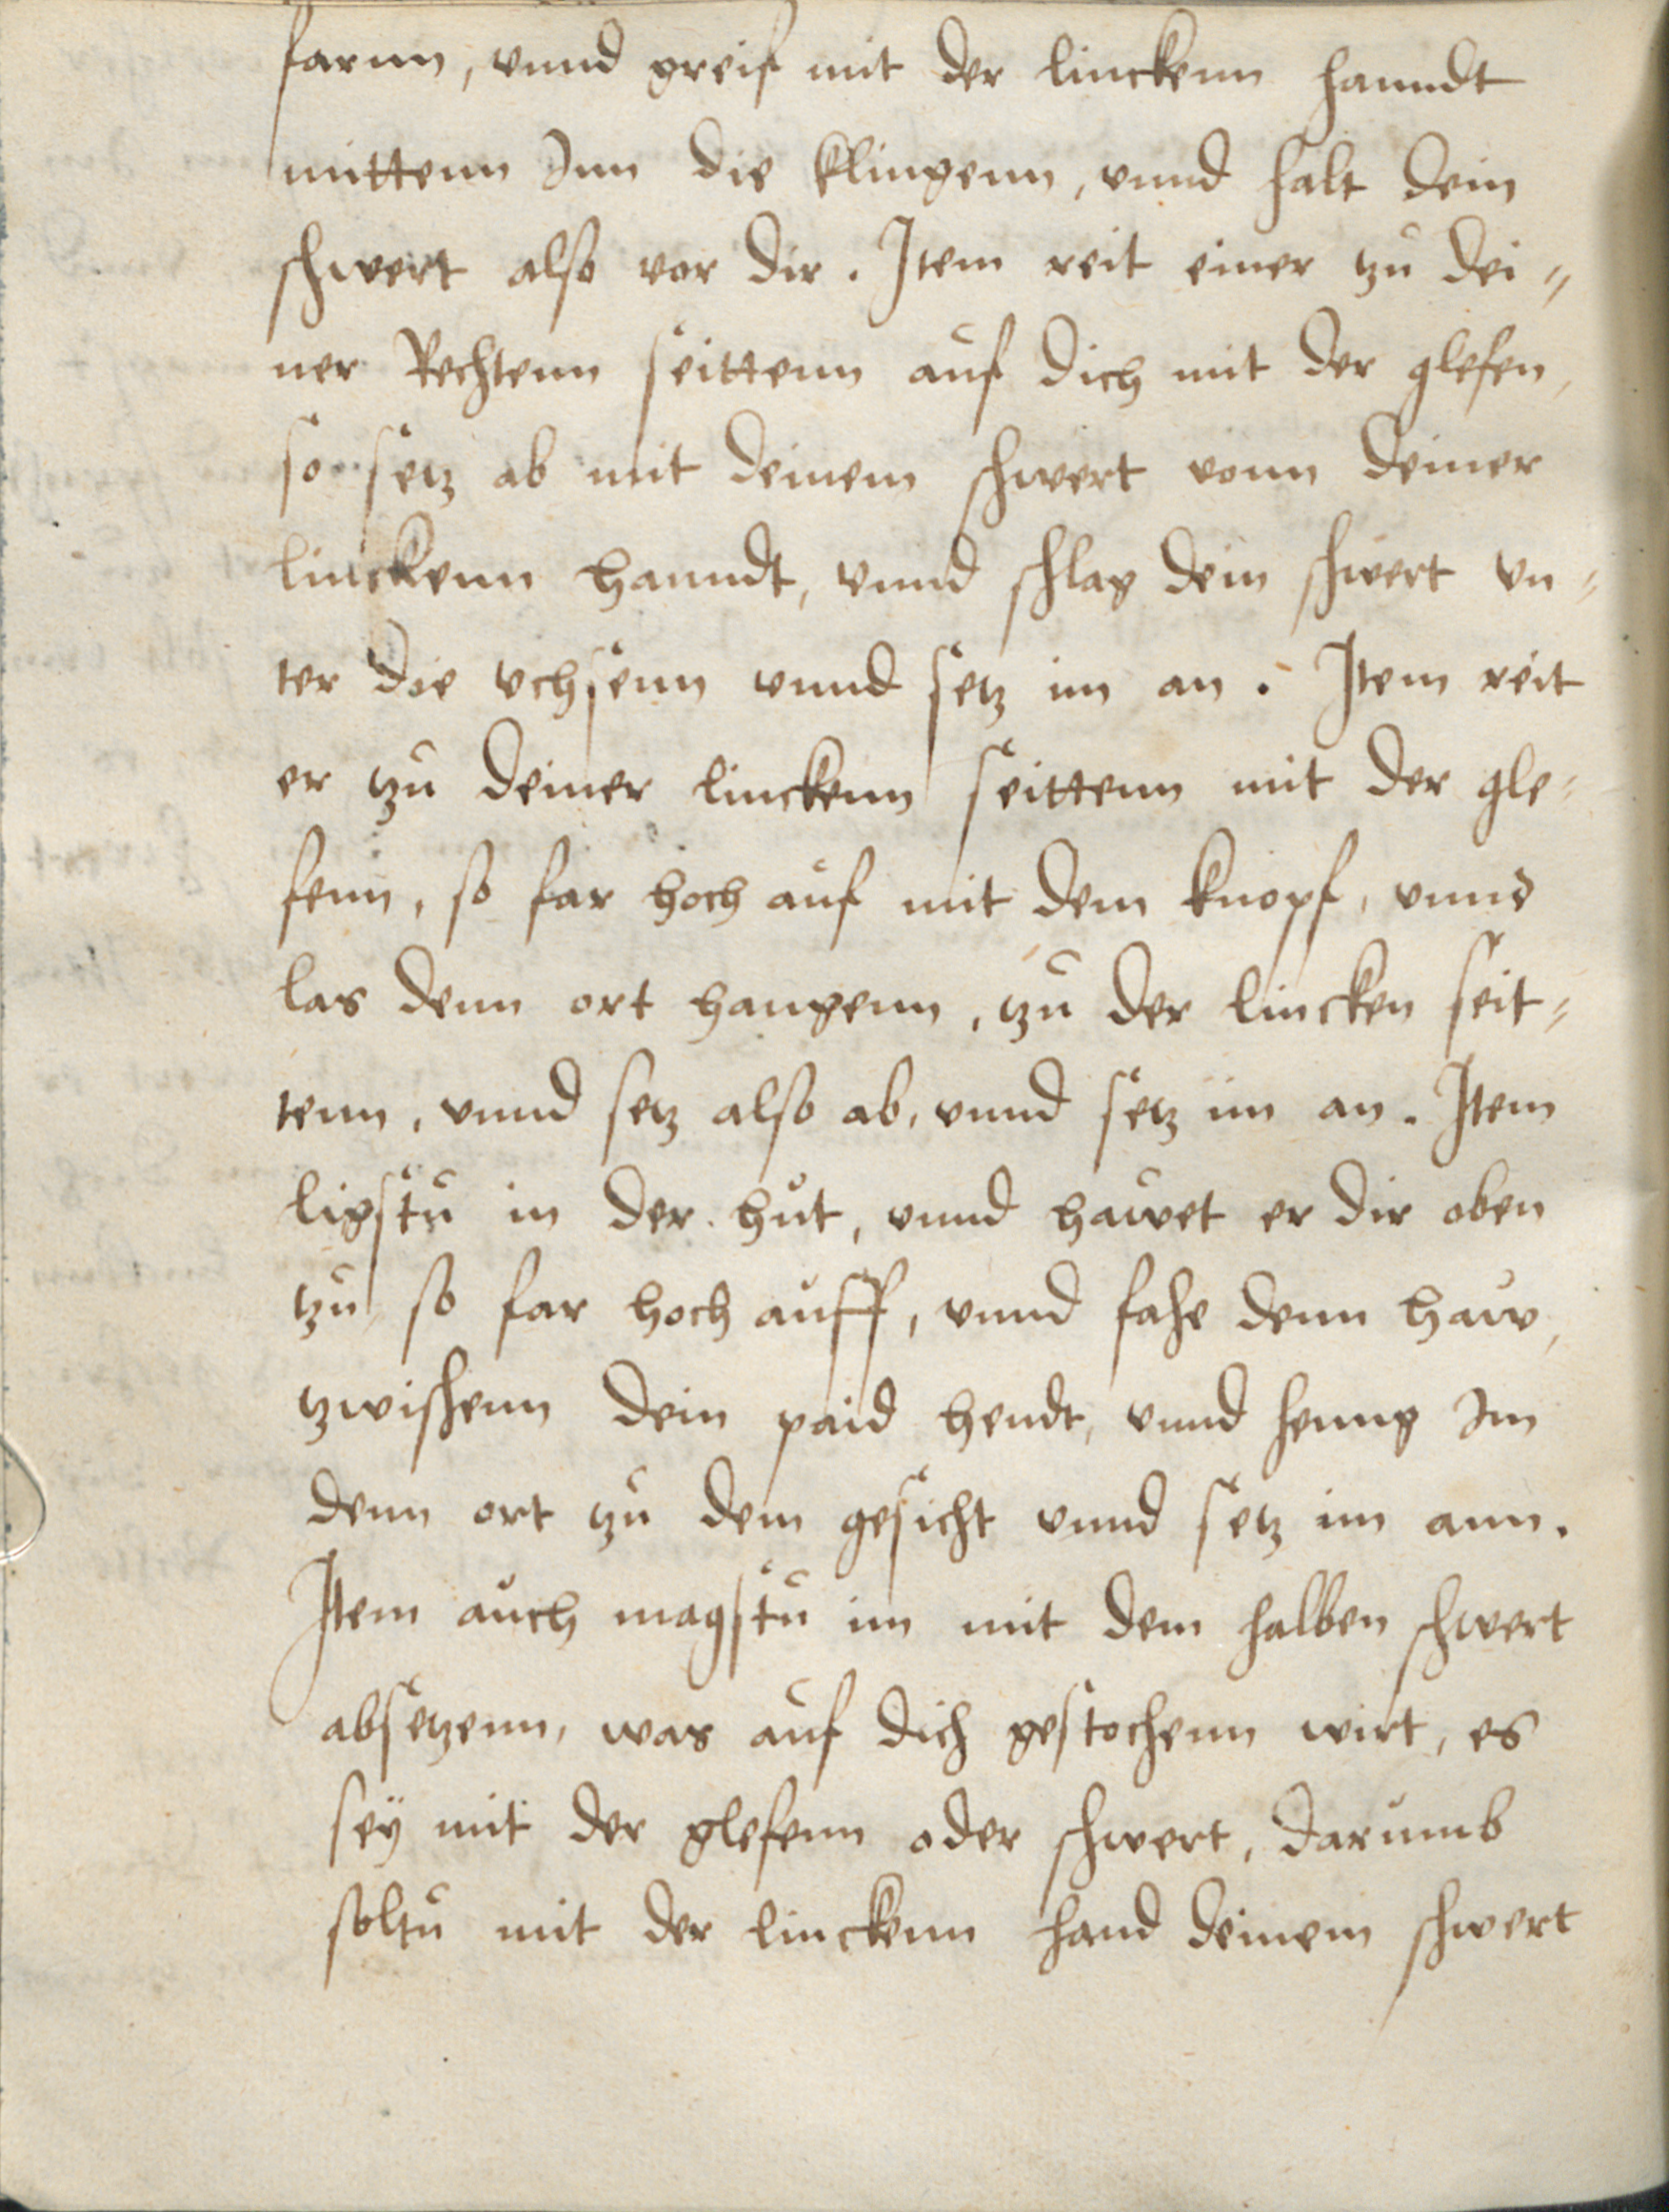 farnn, vnnd greif mit der linckenn hanndt
mittenn Inn die klingenn, vnnd halt dein
schwert also vor dir. Item reit einer tzu dei=
ner Rechtenn seittenn auf dich mit der glefen,
so setz ab mit deinem schwert vonn deiner
linckenn hanndt, vnnd schlag dein schwert vn=
ter die vchsenn vnnd setz im an. Item reit
er tzu deiner linckenn seittenn mit der gle=
fenn, so far hoch auf mit dem knopf, vnnd
las denn ort hangenn, tzu der lincken seit=
tenn, vnnd setz also ab, vnnd setz im an. Item
ligstu in der hut, vnnd hawet er dir oben
tzu so far hoch auff, vnnd fahe denn haw,
tzwischenn dein paid hendt, vnnd henng Im
denn ort tzu dem gesicht vnnd setz im ann.
Item auch magstu im mit dem halben schwert
absetzenn, was auf dich gestochenn wirt, es
seÿ mit der glefenn oder schwert, darumb
soltu mit der linckenn hand deinem schwert